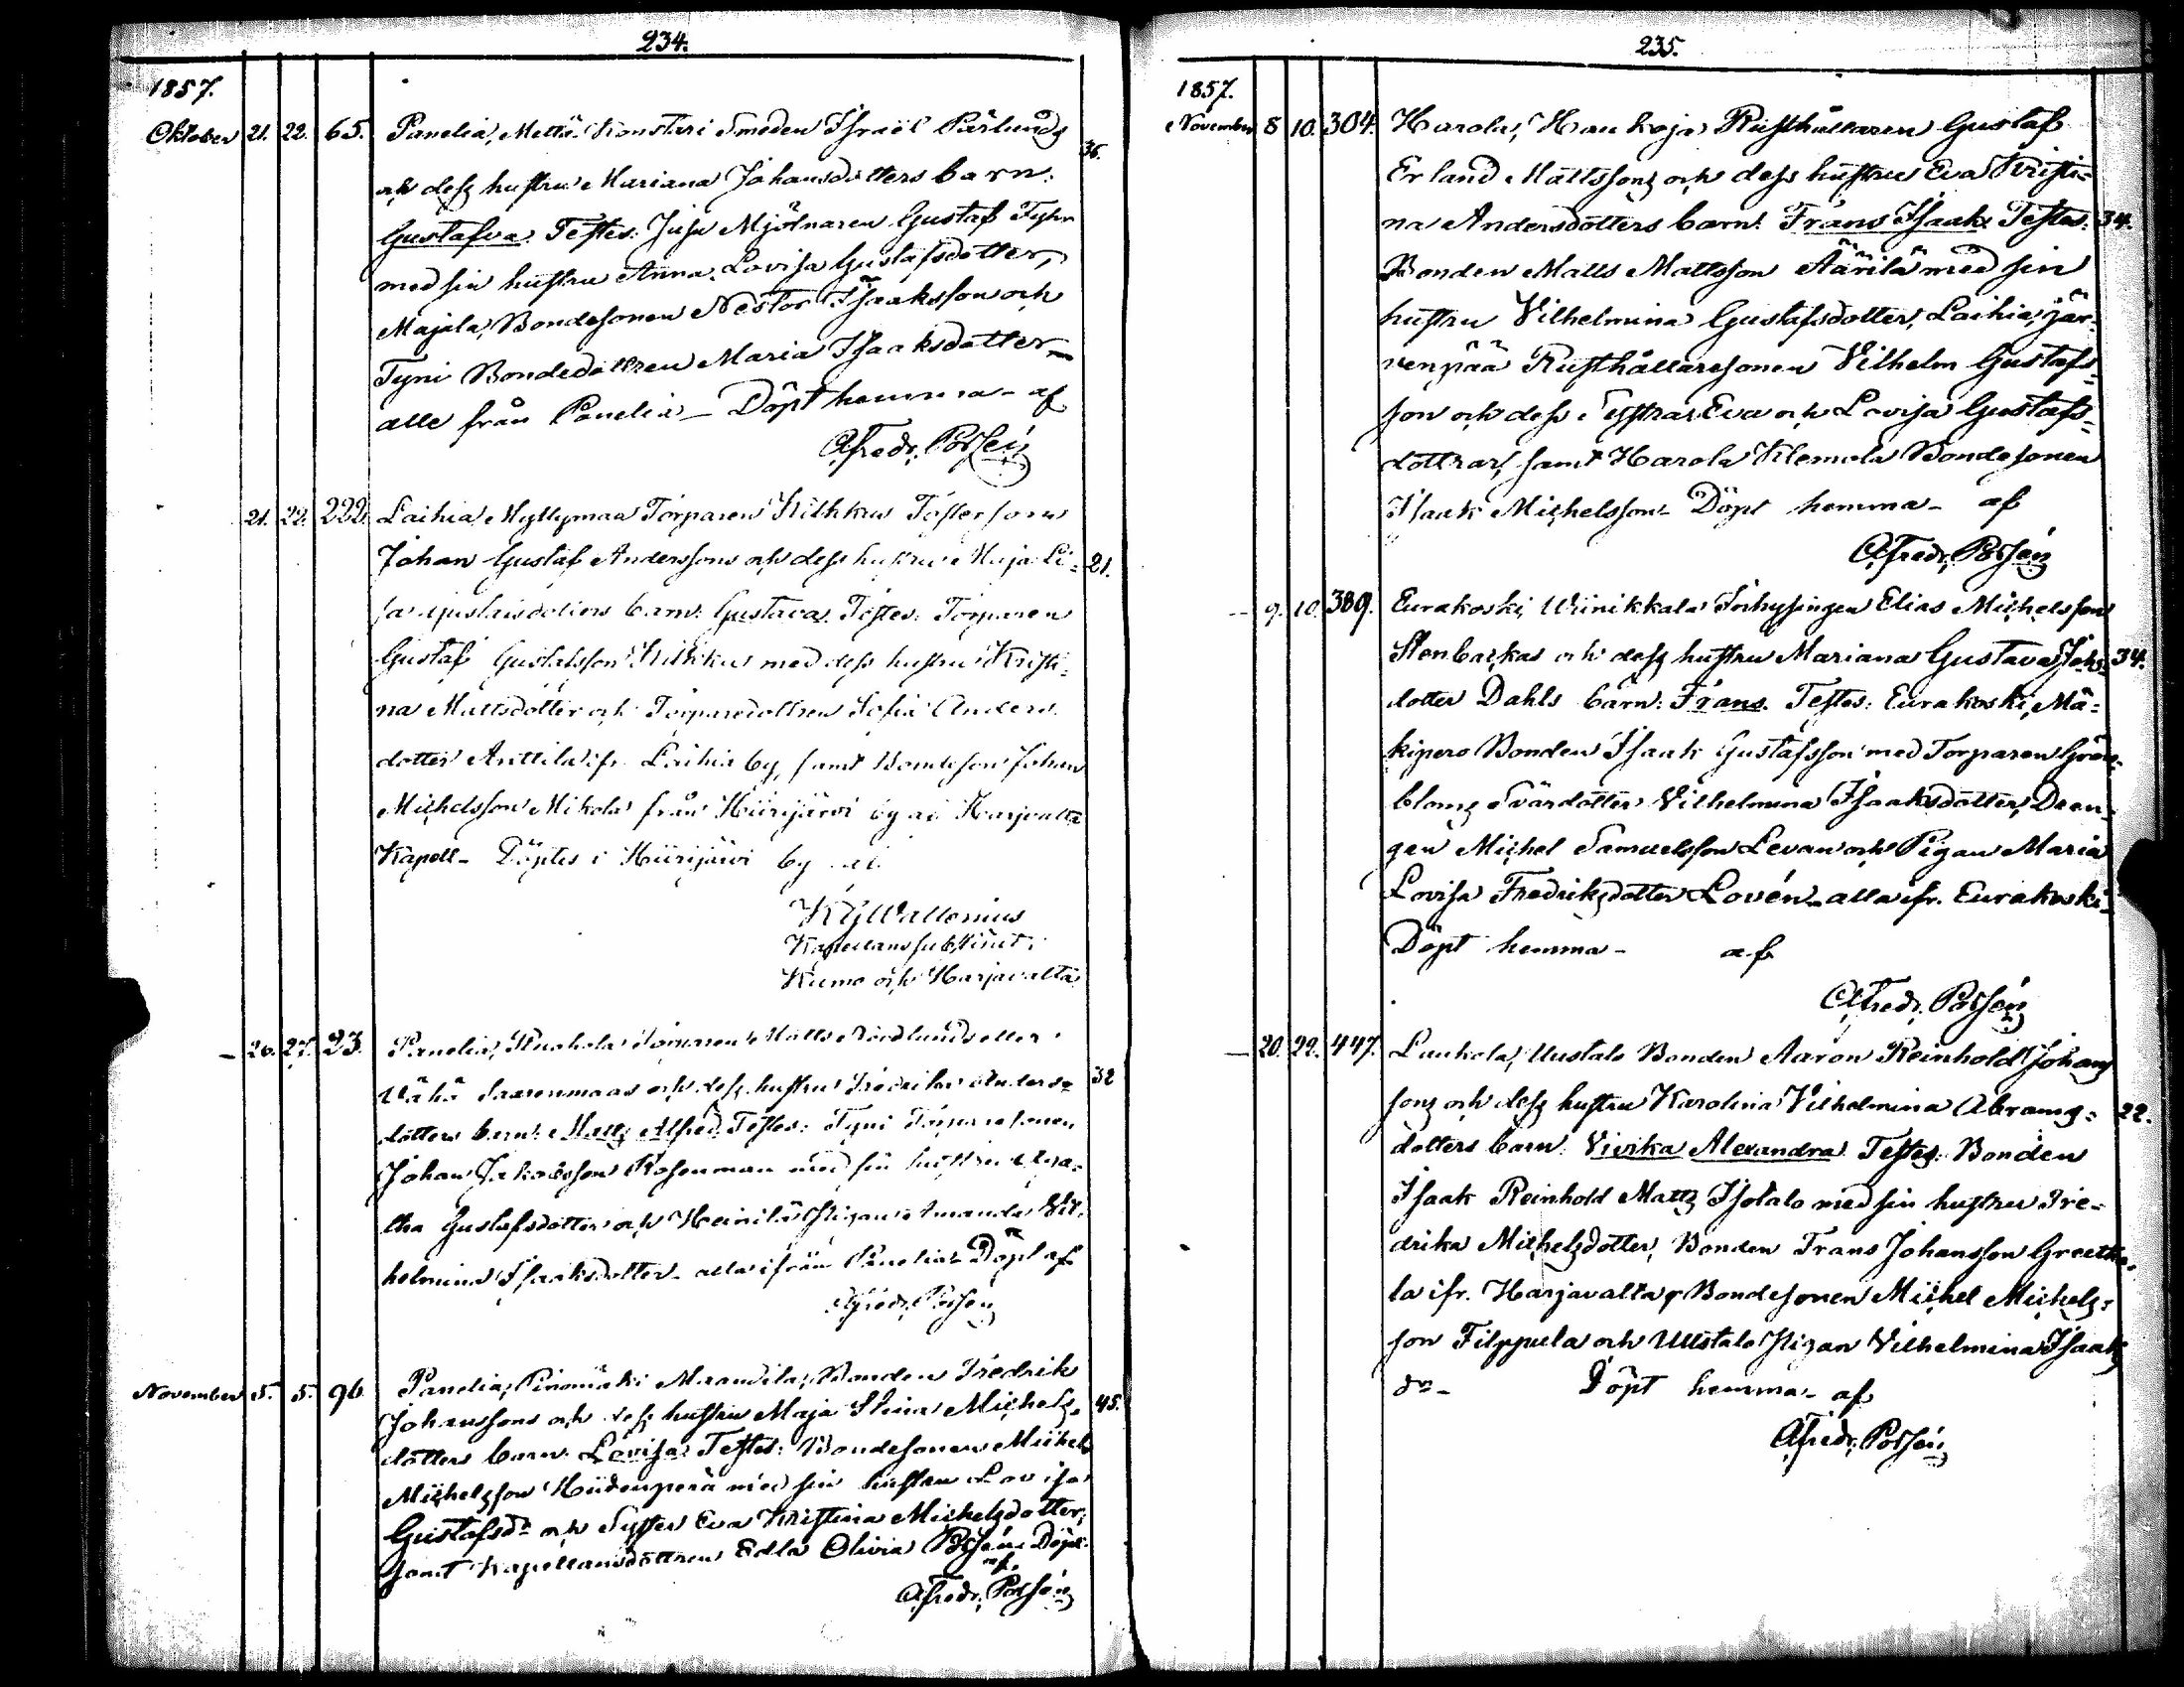 234.
1857.
Oktober 21. 22. 65. Panelia, Mettä-Konstari Smeden Israël Pärlunds
och dess hustru Mariana Johansdotters barn: 36.
Gustafva. Testes: Juse Mjölnaren Gustaf Fyhr
med sin hustru Anna Lovisa Gustafsdotter,
Majala, Bondesonen Nestor Isaaksson och
Tyni Bondedottren Maria Isaaksdotter
alle från Panelia – Döpt hemma – af
Alfredr. Polsén
21. 22. 222. Laihia Myllymaa Torparen Kithkus Dotterson
Johan Gustaf Anderssons och dess hustru Maja Li- 21.
sa Gustafsdotters barn: Gustava. Testes: Torparen
Gustaf Gustafsson Kithkus med dess hustru Kristi-
na Mattsdotter och Torparedottren Sofia Anders-
dotter Anttila ifr. Laihia by, samt Bondeson Johan
Michelsson Mikola från Hiirijärvi by af Harjavalta
Kapell – Döptes i Hiirijärvi by af
KGWallenius
Kapellans substitut i
Kumo och Harjavalta
– 26. 27. 23. Panelia, Torparen Matts Nordlunds eller
Vähä Saarenmaas och dess hustru Fredrika Anders- 32
dotters barn: Matts Alfred. Testes: Tyni Torparesonen
Johan Jakobsson Rosenman med sin hustru Aga-
tha Gustafsdotter och Heinilä Pigan Amanda Vil-
helmina Isaksdotter – alla ifrån Panelia – Döpt af
Alfredr. Polsén
November 5. 5. 96. Panelia, Pinomäki Mrandila, Bonden Fredrik
Johanssons och dess hustru Maja Stina Michels- 45.
dotters barn: Lovisa. Testes: Bondesonen Michel
Michelsson Hiidenperä med sin hustru Lovisa
Gustafsdr och Syster Eva Kristina Michelsdotter,
samt Kapellansdottren Edla Olivia Polsén. Döpt
af
Alfredr. Polsén
235.
1857.
November 8 10. 304. Harola, Haukoja Rusthållaren Gustaf
Erland Mattssons och dess hustru Eva Kristi-
na Andersdotters barn: Frans Isaak. Testes: 34.
Bonden Matts Mattsson Äärilä med sin
hustru Vilhelmina Gustafsdotter, Laihia, Jär-
venpää Rusthållaresonen Vilhelm Gustafs-
son och dess Systrar Eva och Lovisa Gustafs-
dottrar, samt Harola Klemola Bondesonen
Isaak Michelsson – Döpt hemma – af
Alfredr. Polsén
– 9. 10. 389. Eurakoski Wiinikkala Inhysingen Elias Michelsson
Stenbackas och dess hustru Mariana Gustava Johs- 34.
dotter Dahls barn: Frans. Testes: Eurakoski, Mä-
kipero Bonden Isaak Gustafsson med Torparen Grön-
bloms Svärdotter Vilhelmina Isaaksdotter, Drän-
gen Michel Samuelsson Levan och Pigan Maria
Lovisa Fredriksdotter Lovén – alla ifr. Eurakoski –
Döpt hemma – af
Alfredr. Polsén
– 20. 22. 447. Laukola, Uustalo Bonden Aaron Reinhold Johans
sons och dess hustru Karolina Vilhelmina Abrams- 22.
dotters barn: Vivika Alexandra. Testes: Bonden
Isaak Reinhold Matts Isotalo med sin hustru Fre-
drika Michelsdotter, Bonden Frans Johansson Greeth-
la ifr. Harjavalta, Bondesonen Michel Michels-
son Filppula och Uustalo Pigan Vilhelmina Isaaks
dr – Döpt hemma – af
Alfredr. Polsén